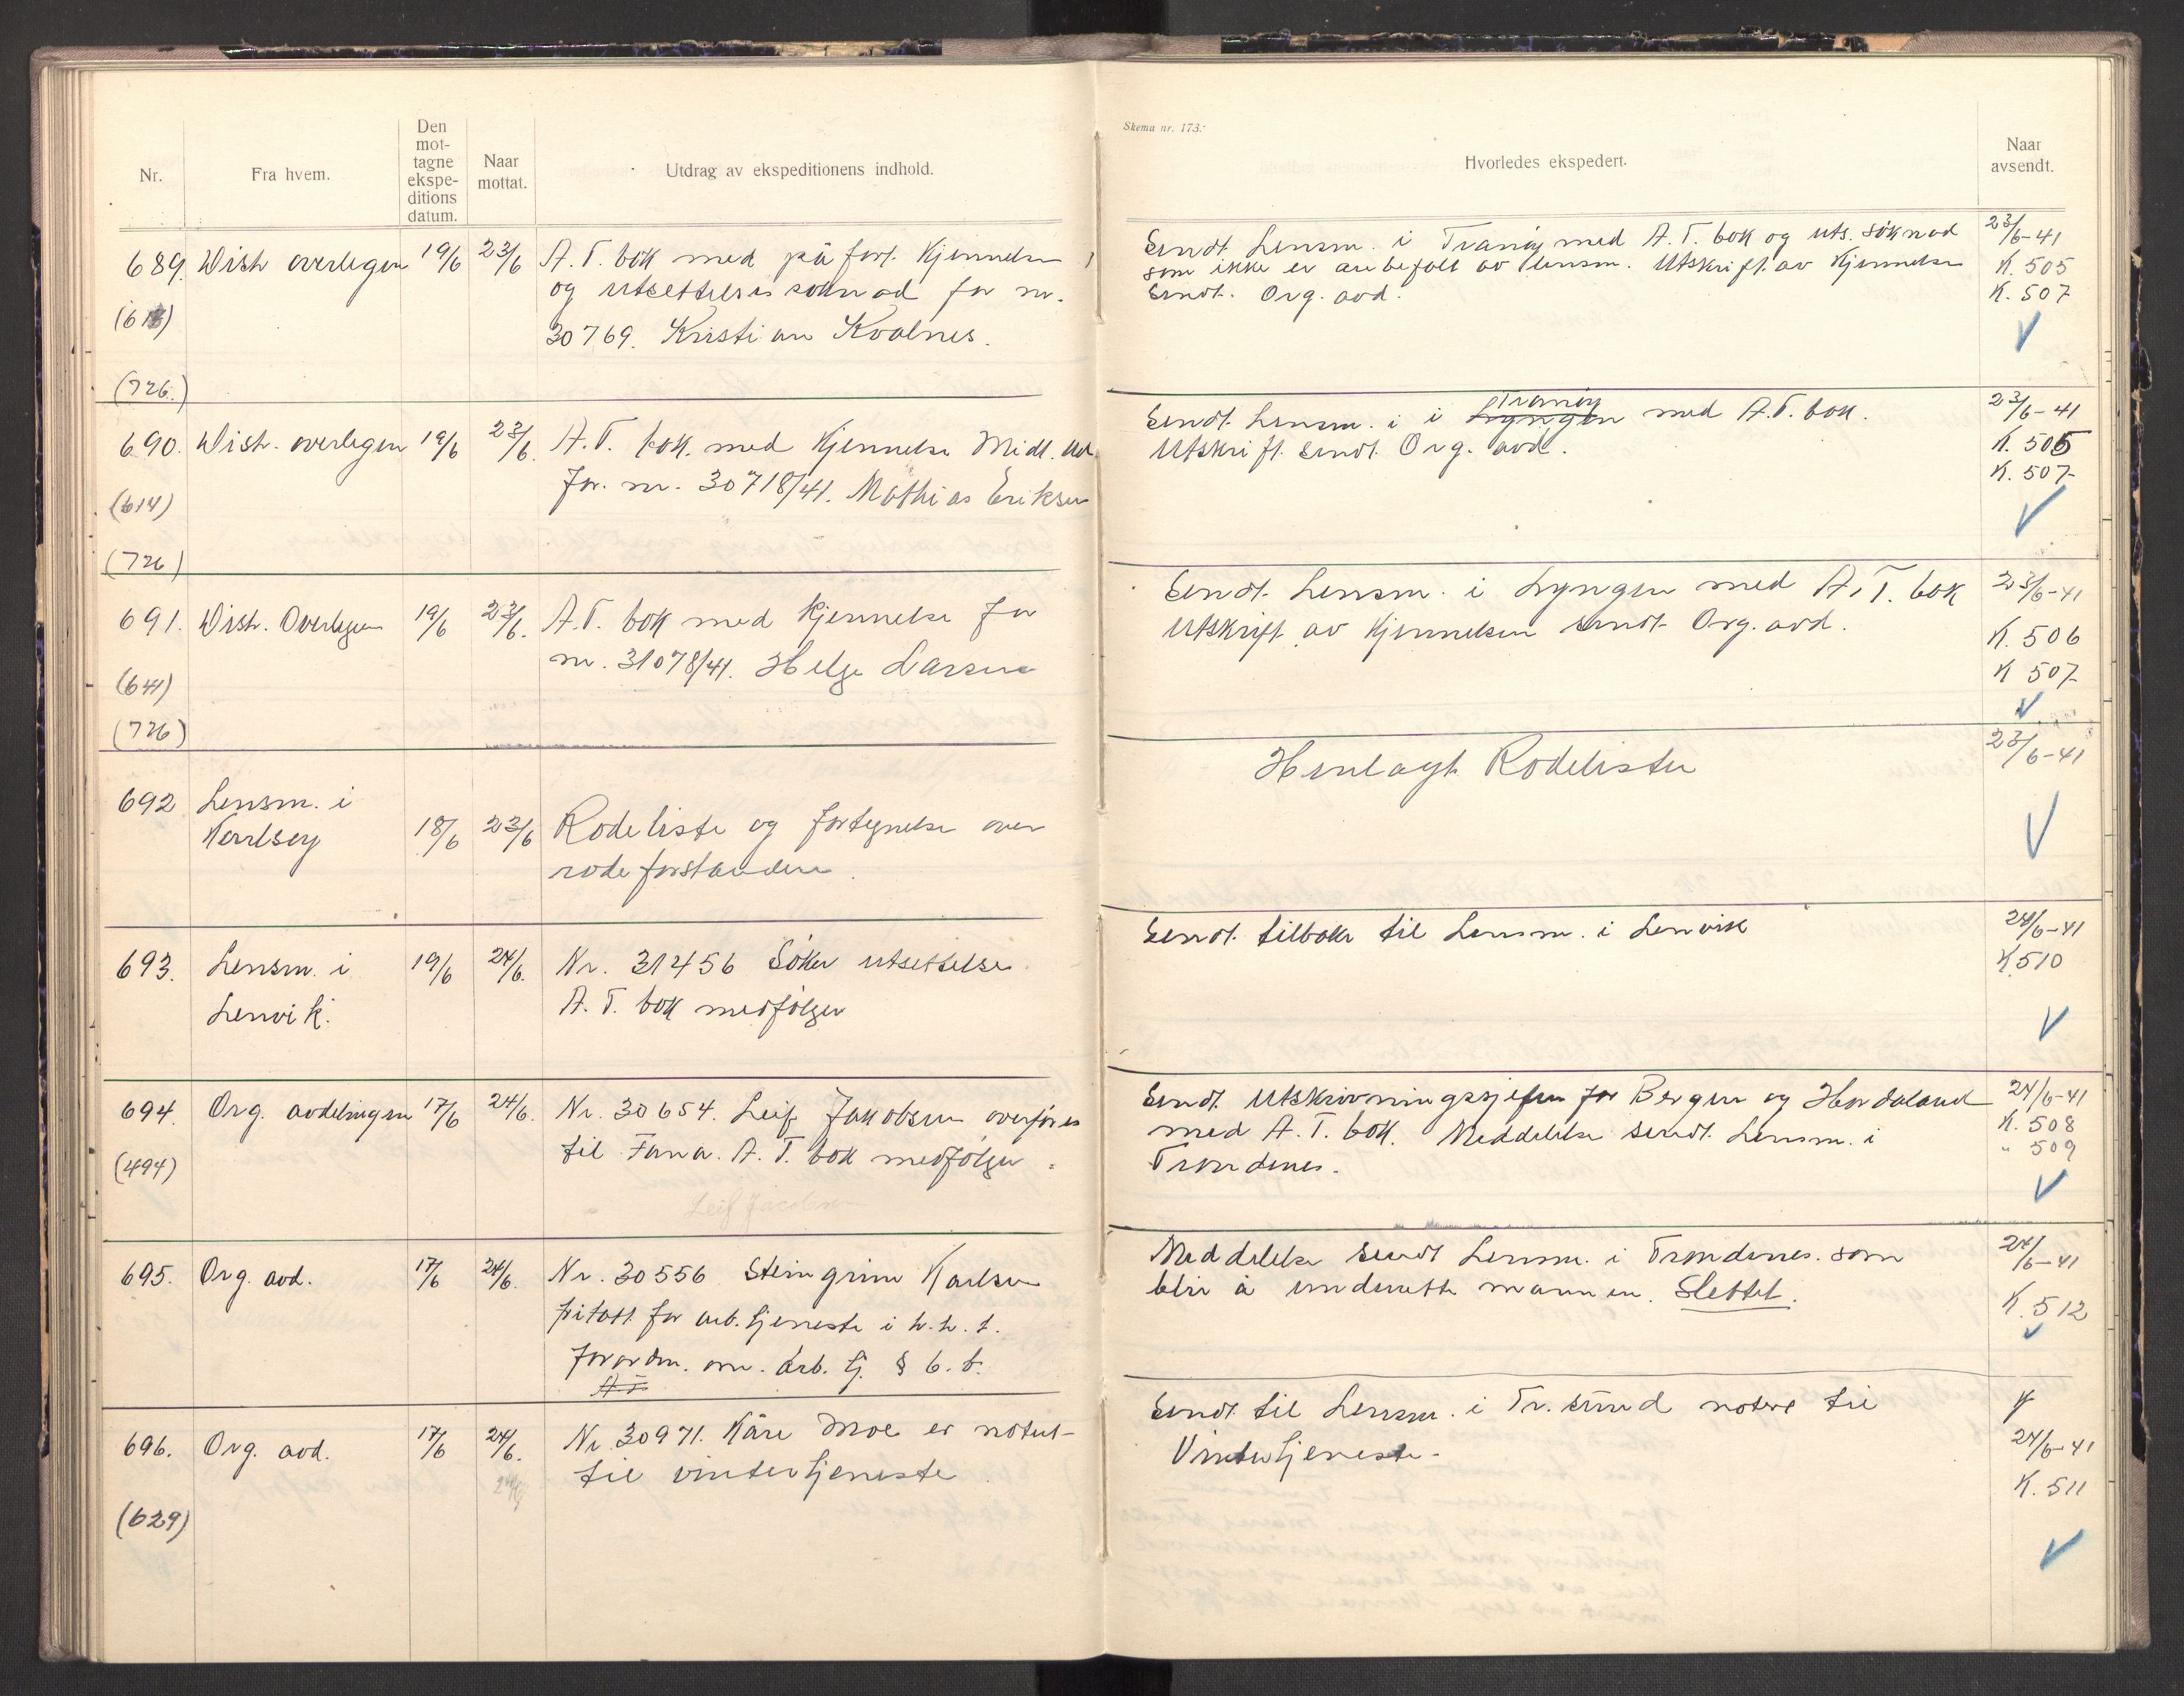 Nr.
Fra hvem.
Den
mot-
tagne
ekspe-
ditions
datum.
Naar
mottat.
Utdrag av ekspeditionens indhold.
689. Distr overlegen 19/6 23/6 A.T. bok med påført Kjennelse
og utsettelsessøknad for nr.
(613)
30769. Kristian Kvalnes.
(726.)
690. Distr. overlegen 19/6 23/6. A.T. bok med Kjennelse Midl. Ud.
for nr. 30718/41. Mathias Eriksen
(614)
(726)
691. Distr. Overlegen 19/6 23/6. A.T. bok med Kjennelse for
nr. 31078/41. Helge Larsen
(641)
(726)
692 Lensm. i
Karlsøy 18/6 23/6 Rodeliste og fortegnelse over
rodeforstandere.
693. Lensm. i 19/6 24/6. Nr. 31456 Söker utsettelse
Lenvik. A.T. bok medfølger
694. Org. avdelingen 17/6 24/6. Nr. 30654. Leif Jakobsen overføres
(494) til Fana. A.T. bok medfølger.
Leif Jacobsen
695. Org. avd. 17/6 24/6. Nr. 30556 Steingrim Karlsen
fritatt for arb. tjeneste i h.h.t.
forordn. om. arb. tj. § 6. b.
A.T.
696. Org. avd. 17/6 24/6. Nr. 30971. Kåre Moe er notert
24/6
til vintertjeneste.
(629)
Skema nr. 173.
Hvorledes ekspedert.
Naar
avsendt.
Sendt Lensm. i Tranøy med A.T. bok og uts. søknad 23/6-41
som ikke er anbefalt av lensm. Utskrift av Kjennelse K. 505
sendt. Org. avd. K. 507
Tranøy
Sendt Lensm. i i Lyngen med A.T. bok. 23/6-41
Utskrift sendt Org. avd. K. 505
K. 507
Sendt Lensm. i Lyngen med A.T. bok 23/6-41
Utskrift av Kjennelsen sendt Org. avd. K. 506
K 507
Henlagt Rodelister 23/6-41
Sendt tilbake til Lensm. i Lenvik 24/6-41
K.510
Sendt Utskrivningssjefen for Bergen og Hordaland 24/6-41
med A.T. bok. Meddelelse sendt Lensm. i K. 508
Trondenes. " 509
Meddelelse sendt Lensm. i Trondenes. som 24/6-41
blir å underrette mannen. Slettet. K. 512
Sendt til Lensm. i Tr.sund notert til
Vintertjeneste. 24/6-41
K. 511